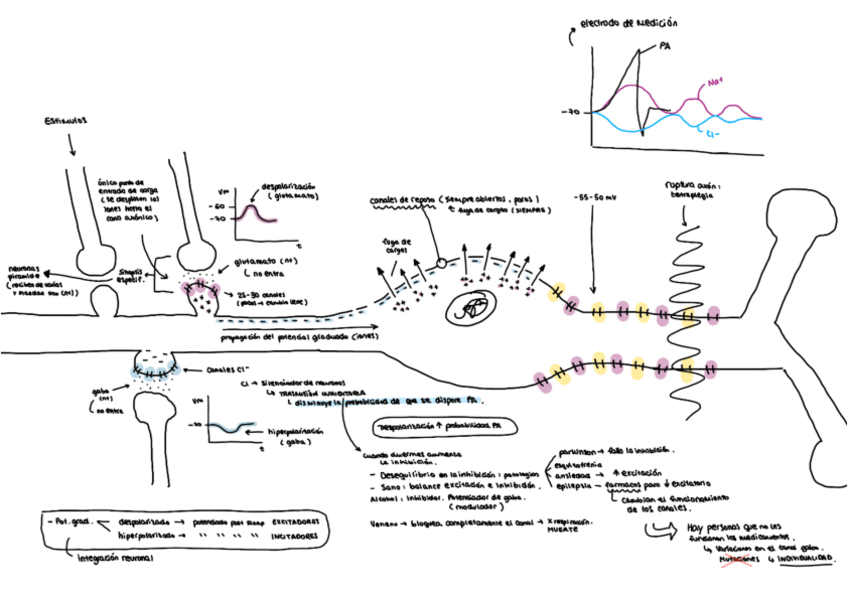 electrodo de medición
PA
Na+
-70
Cl-
Estímulos
único punto de
entrada de carga
(se desplazan los
iones hasta el
cono axónico)
Vm
-60
-70
t
despolarización
(glutamato)
canales de reposo (siempre abiertos, poros)
fuga de cargas (SIEMPRE)
fuga de
cargas
-55-50 mV
ruptura axón:
neuronas
piramide
(reciben de varias
y mandan una (nt))
sinapsis
específ.
glutamato (nt)
no entra
25-30 canales
(pocos → cambio leve)
propagación del potencial graduado (iones)
canales Cl-
Cl → silenciador de neuronas
TRANSMISIÓN INHIBITORIA
disminuye la probabilidad de que se dispare PA.
gaba
(nt)
no entra
Vm
-70
t
hiperpolarización
(gaba)
Despolarización ↑ probabilidad PA
cuando duermes aumenta
la inhibición.
- Desequilibrio en la inhibición: patologías
- Sano: balance excitación e inhibición.
Alcohol: inhibidor. Potenciador de gaba.
(modulador)
Veneno → bloquea completamente el canal → X respiración.
MUERTE
parkinson → falla la inhibición.
esquizofrenia
ansiedad → ↑ excitación
epilepsia - fármacos para ↓ excitatorio
cambian el funcionamiento
de los canales.
Hay personas que no les
funcionan los medicamentos.
↳ variaciones en el canal
Mutaciones ↳ INDIVIDUALIDAD.
- Pot. grad. despolarizado → potenciales post sinap EXCITADORES
hiperpolarizado → " " " INCITADORES
integración neuronal